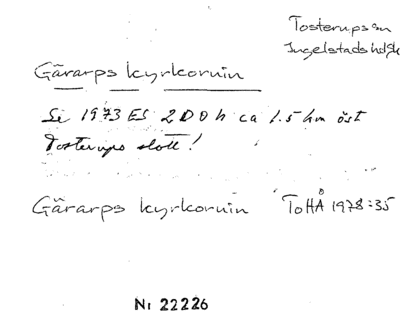 Tosterups sn
Ingelstads hd Sk
Gärarps kyrkoruin
Se 1973 ES 2D0h ca 1.5 km öst
Tosterups slott!
Gärarps kyrkoruin ToHÅ 1978:35
Nr 22226